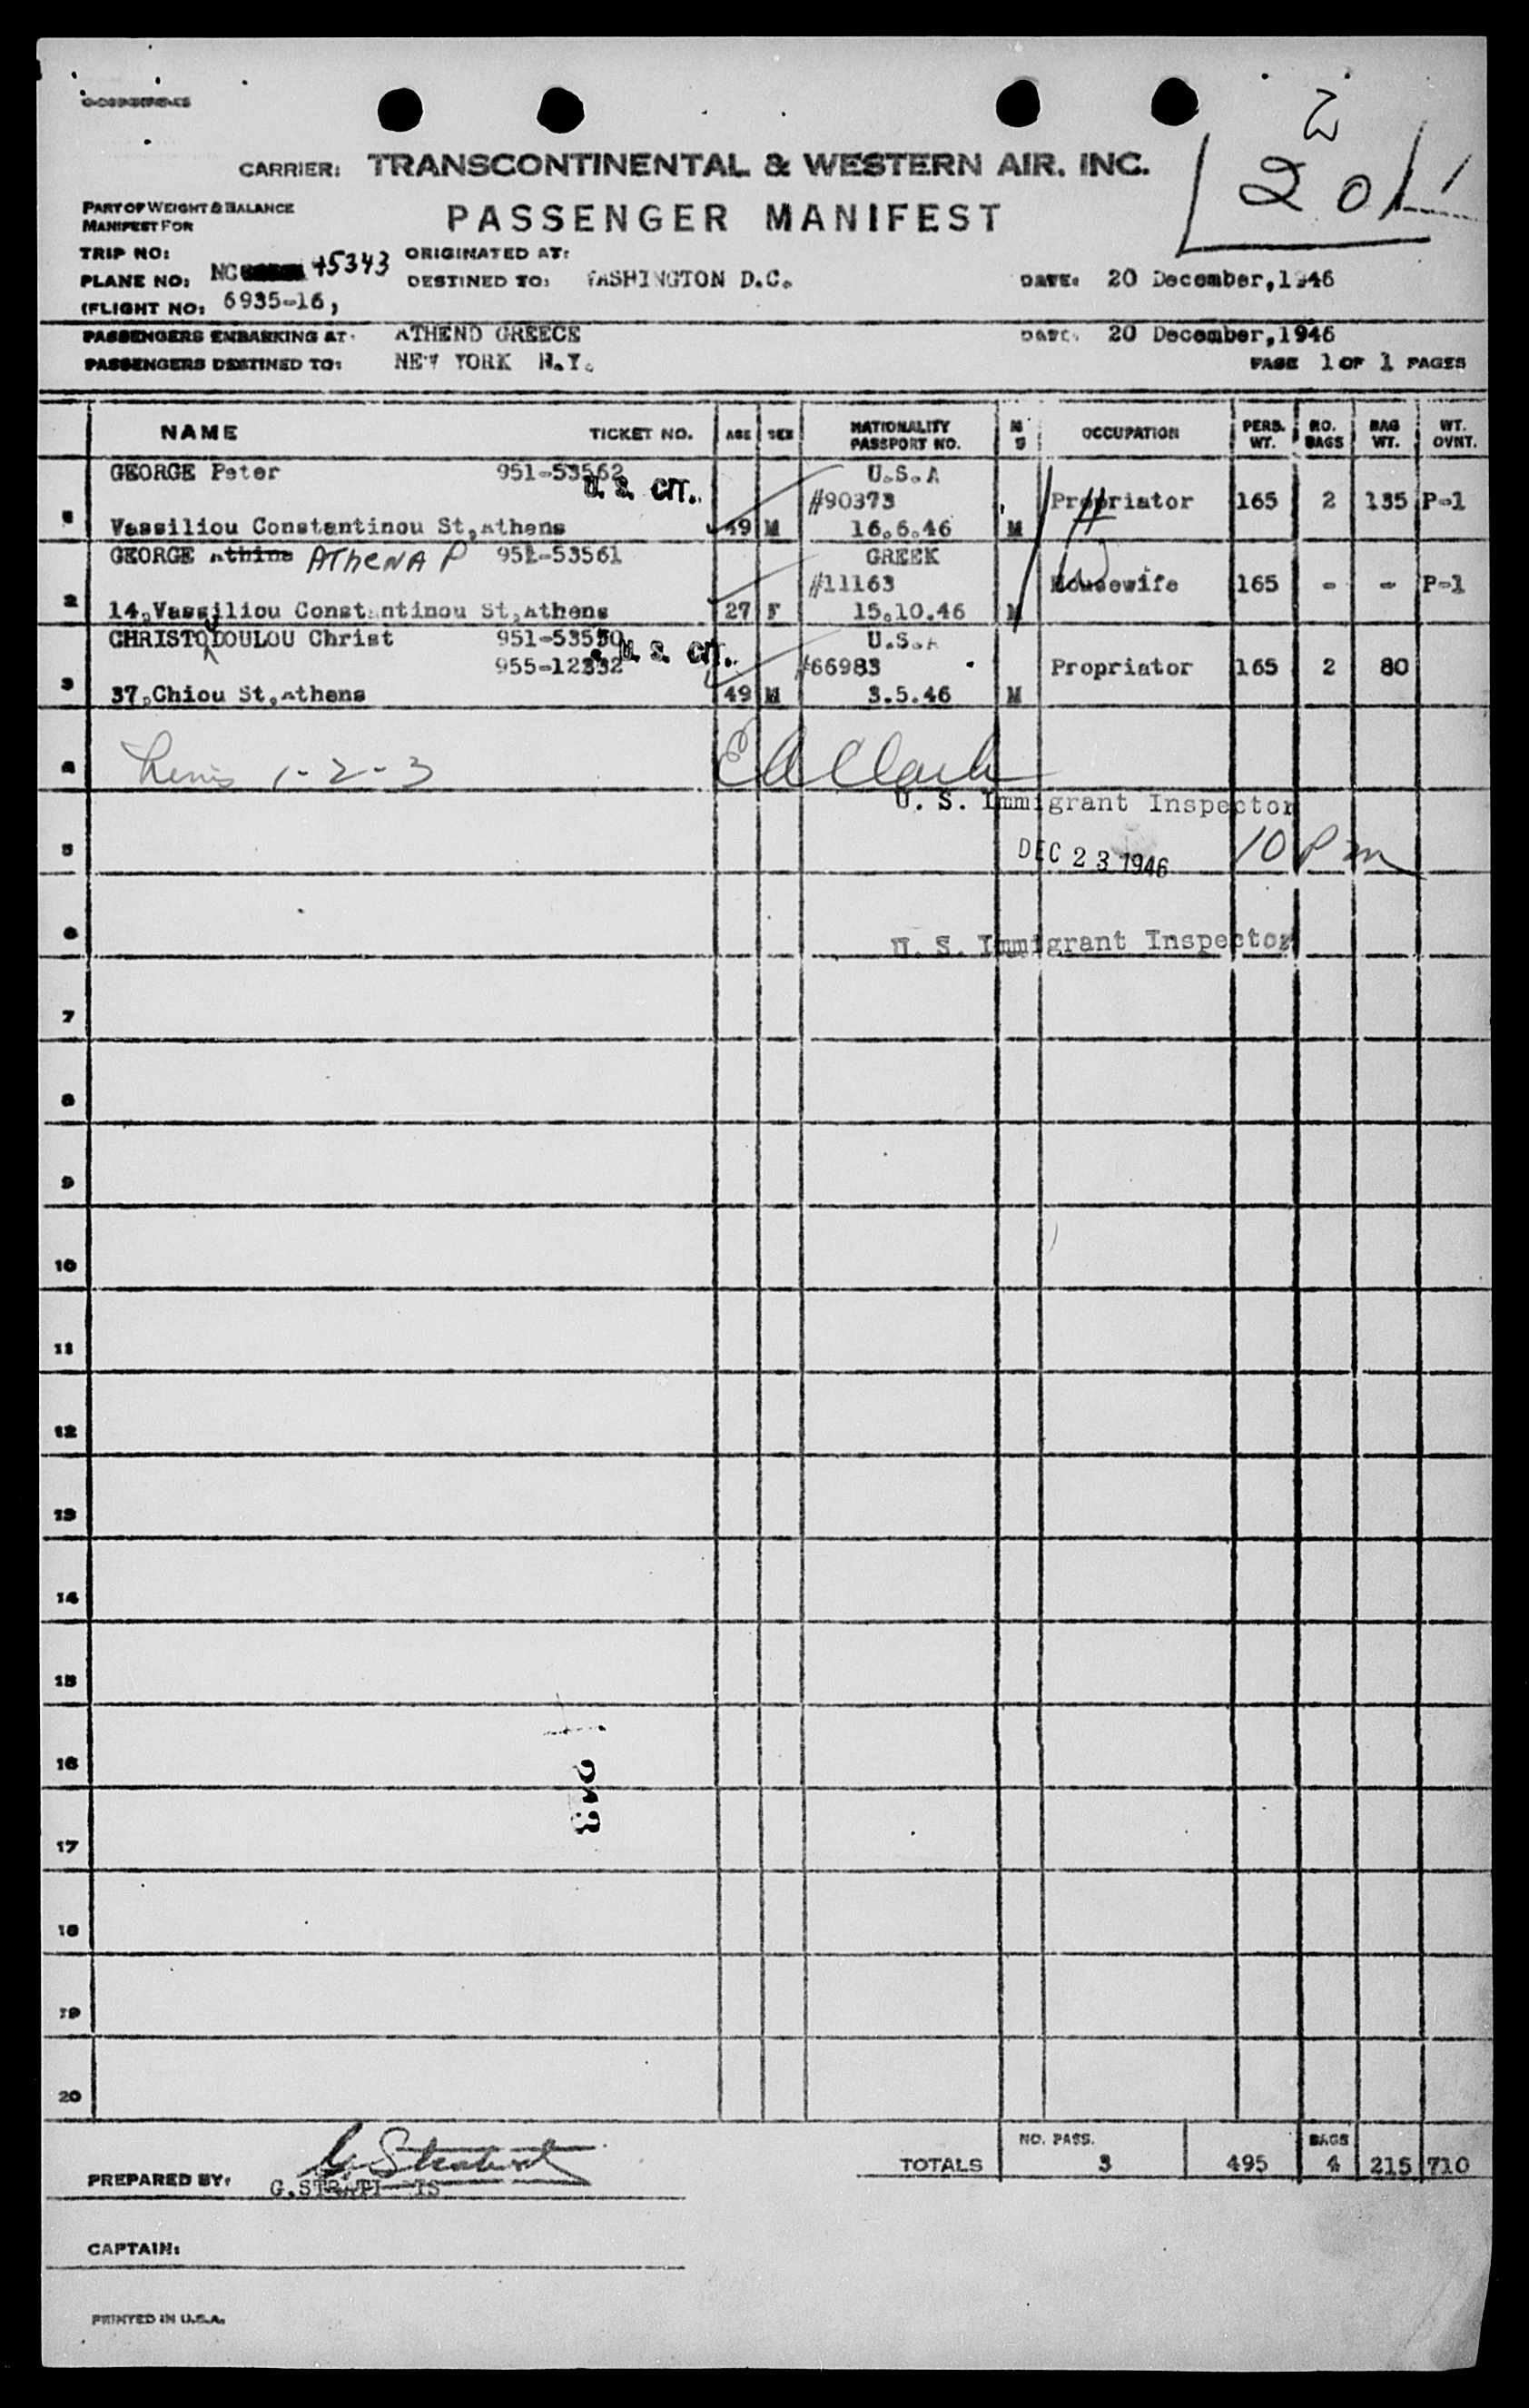 CARRIER: TRANSCONTINENTAL & WESTERN AIR. INC.
2
201
PART OF WEIGHT & BALANCE
MANIFEST FOR
PASSENGER MANIFEST
TRIP NO: ORIGINATED AT:
PLANE NO: NC 45343 DESTINED TO: WASHINGTON D.C. DATE: 20 December,1946
(FLIGHT NO: 6935-16,
PASSENGERS EMBARKING AT: ATHEND GREECE DATE: 20 December,1946
PASSENGERS DESTINED TO: NEW YORK N.Y. PAGE 1 OF 1 PAGES
NAME TICKET NO. AGE SEX NATIONALITY PASSPORT NO. M S OCCUPATION PERS. WT. NO. BAGS BAG WT. WT. OVNT.
GEORGE Peter 951-53562 U.S.A
U. S. CIT. #90373 Propriator 165 2 135 P-1
H
1 Vassiliou Constantinou St,Athens 49 M 16.6.46 M
GEORGE Athina AThENA P 951-53561 GREEK
#11163 Housewife 165 - - P-1
W
2 14,Vassiliou Constantinou St,Athens 27 F 15.10.46 M
CHRISTODOULOU Christ 951-53530 U.S.A
U. S. CIT.
955-12332 #66983 Propriator 165 2 80
3 37,Chiou St,Athens 49 M 3.5.46 M
4 1-2-3 E A Clark
U. S. Immigrant Inspector
5 DEC 23 1946 10 Pm
6 U. S. Immigrant Inspector
7
8
9
10
11
12
13
14
15
16
243
17
18
19
20
NO. PASS. BAGS
TOTALS 3 495 4 215 710
PREPARED BY: G.STRATI IS
CAPTAIN:
PRINTED IN U.S.A.